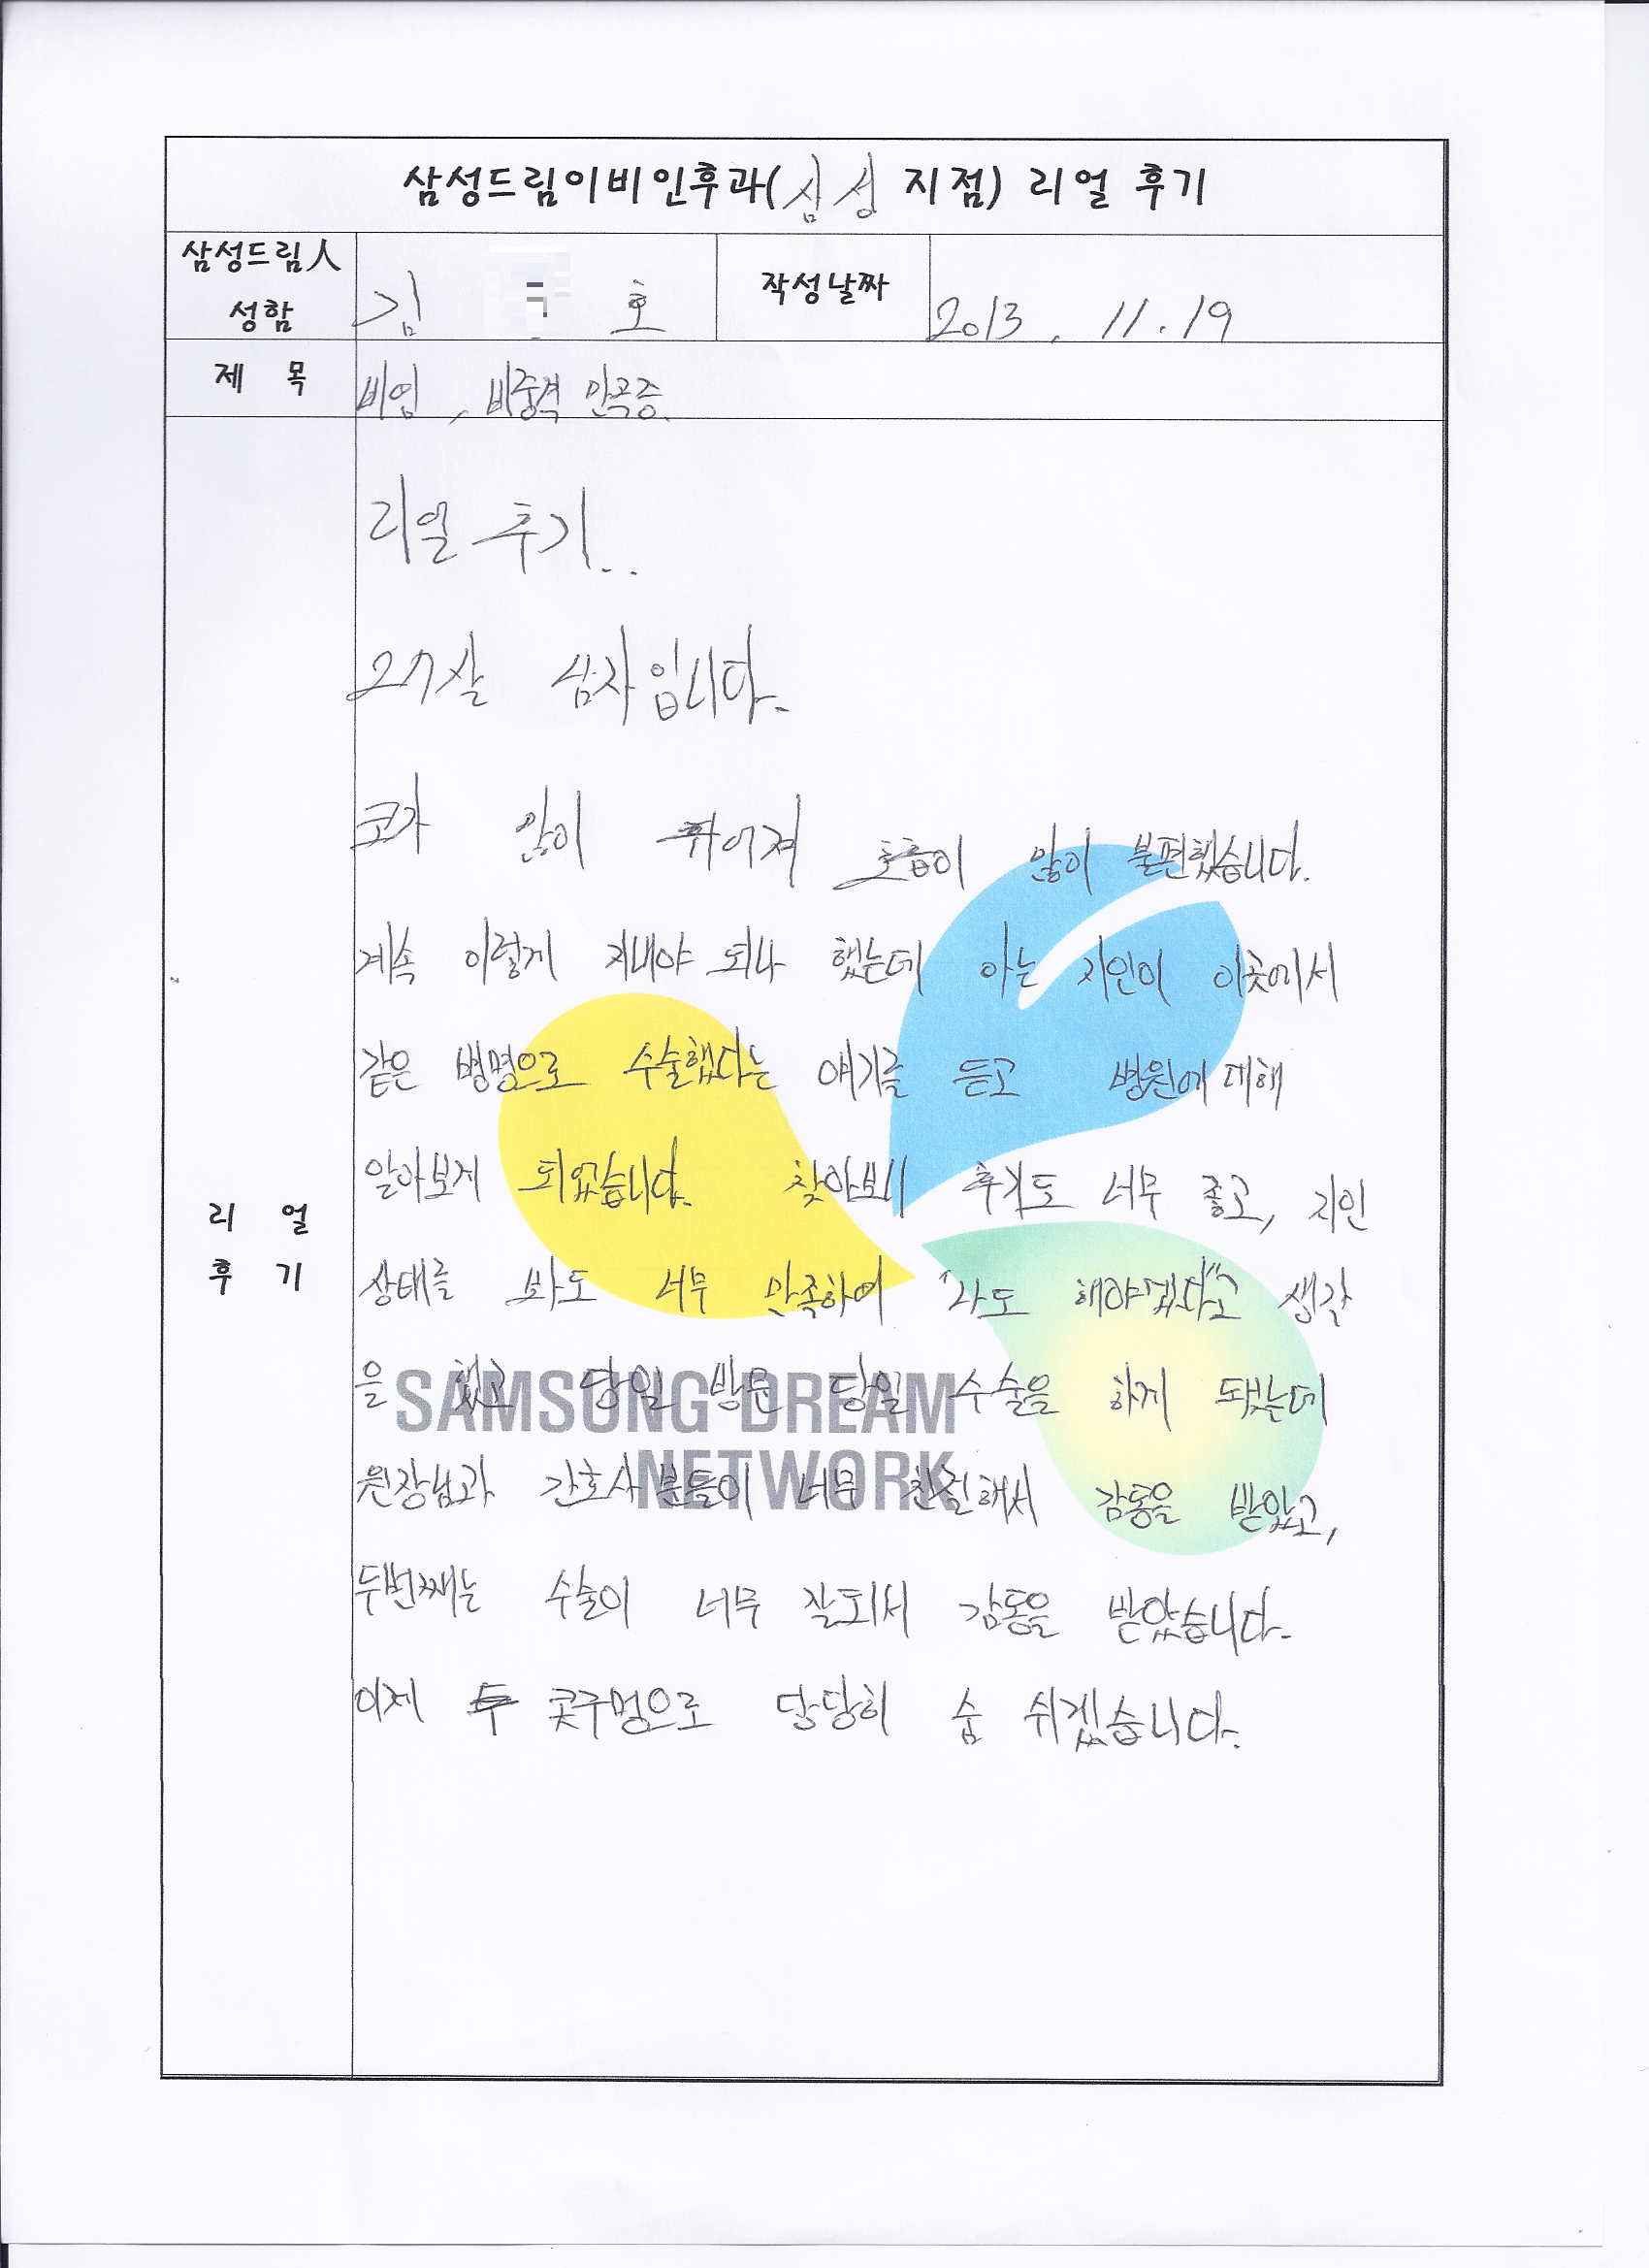 삼성드림이비인후과(삼성 지점) 리얼 후기
삼성드림人 성함
김 호
작성날짜
2013. 11. 19
제 목
비염, 비중격 만곡증.
리 얼 후 기
리얼 후기..
27살 남자입니다.
코가 많이 휘어져 호흡이 많이 불편했습니다.
계속 이렇게 지내야 되나 했는데 아는 지인이 이곳에서
같은 병명으로 수술했다는 얘기를 듣고 병원에 대해
알아보게 되었습니다. 찾아보니 후기도 너무 좋고, 지인
상태를 봐도 너무 만족하여 "나도 해야겠다"고 생각
을 했고 당일 방문 당일 수술을 하게 됐는데
원장님과 간호사분들이 너무 친절해서 감동을 받았고,
두번째는 수술이 너무 잘되서 감동을 받았습니다.
이제 두 콧구멍으로 당당히 숨 쉬겠습니다.
SAMSUNG DREAM
NETWORK